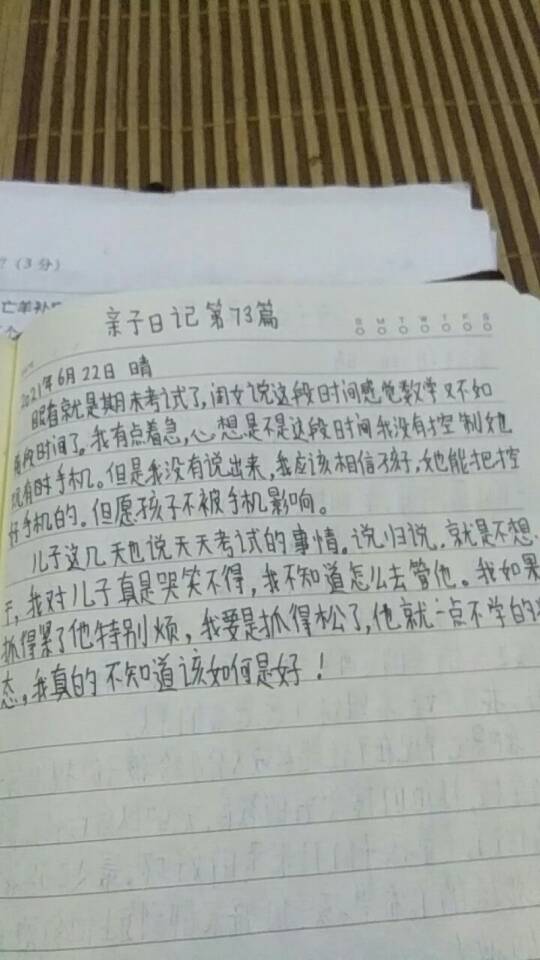 ?(3分)
亡羊补
个
亲子日记第73篇
S M T W T F S
2021年6月22日 晴
眼看就是期末考试了,闺女说这段时间感觉数学又不如
前段时间了。我有点着急,心想是不是这段时间我没有控制她
玩手机。但是我没有说出来,我应该相信孩子,她能把控
好手机的。但愿孩子不被手机影响。
儿子这几天也说天天考试的事情。说归说,就是不想
,我对儿子真是哭笑不得,我不知道怎么去管他。我如果
抓得紧了他特别烦,我要是抓得松了,他就一点不学的
态。我真的不知道该如何是好!